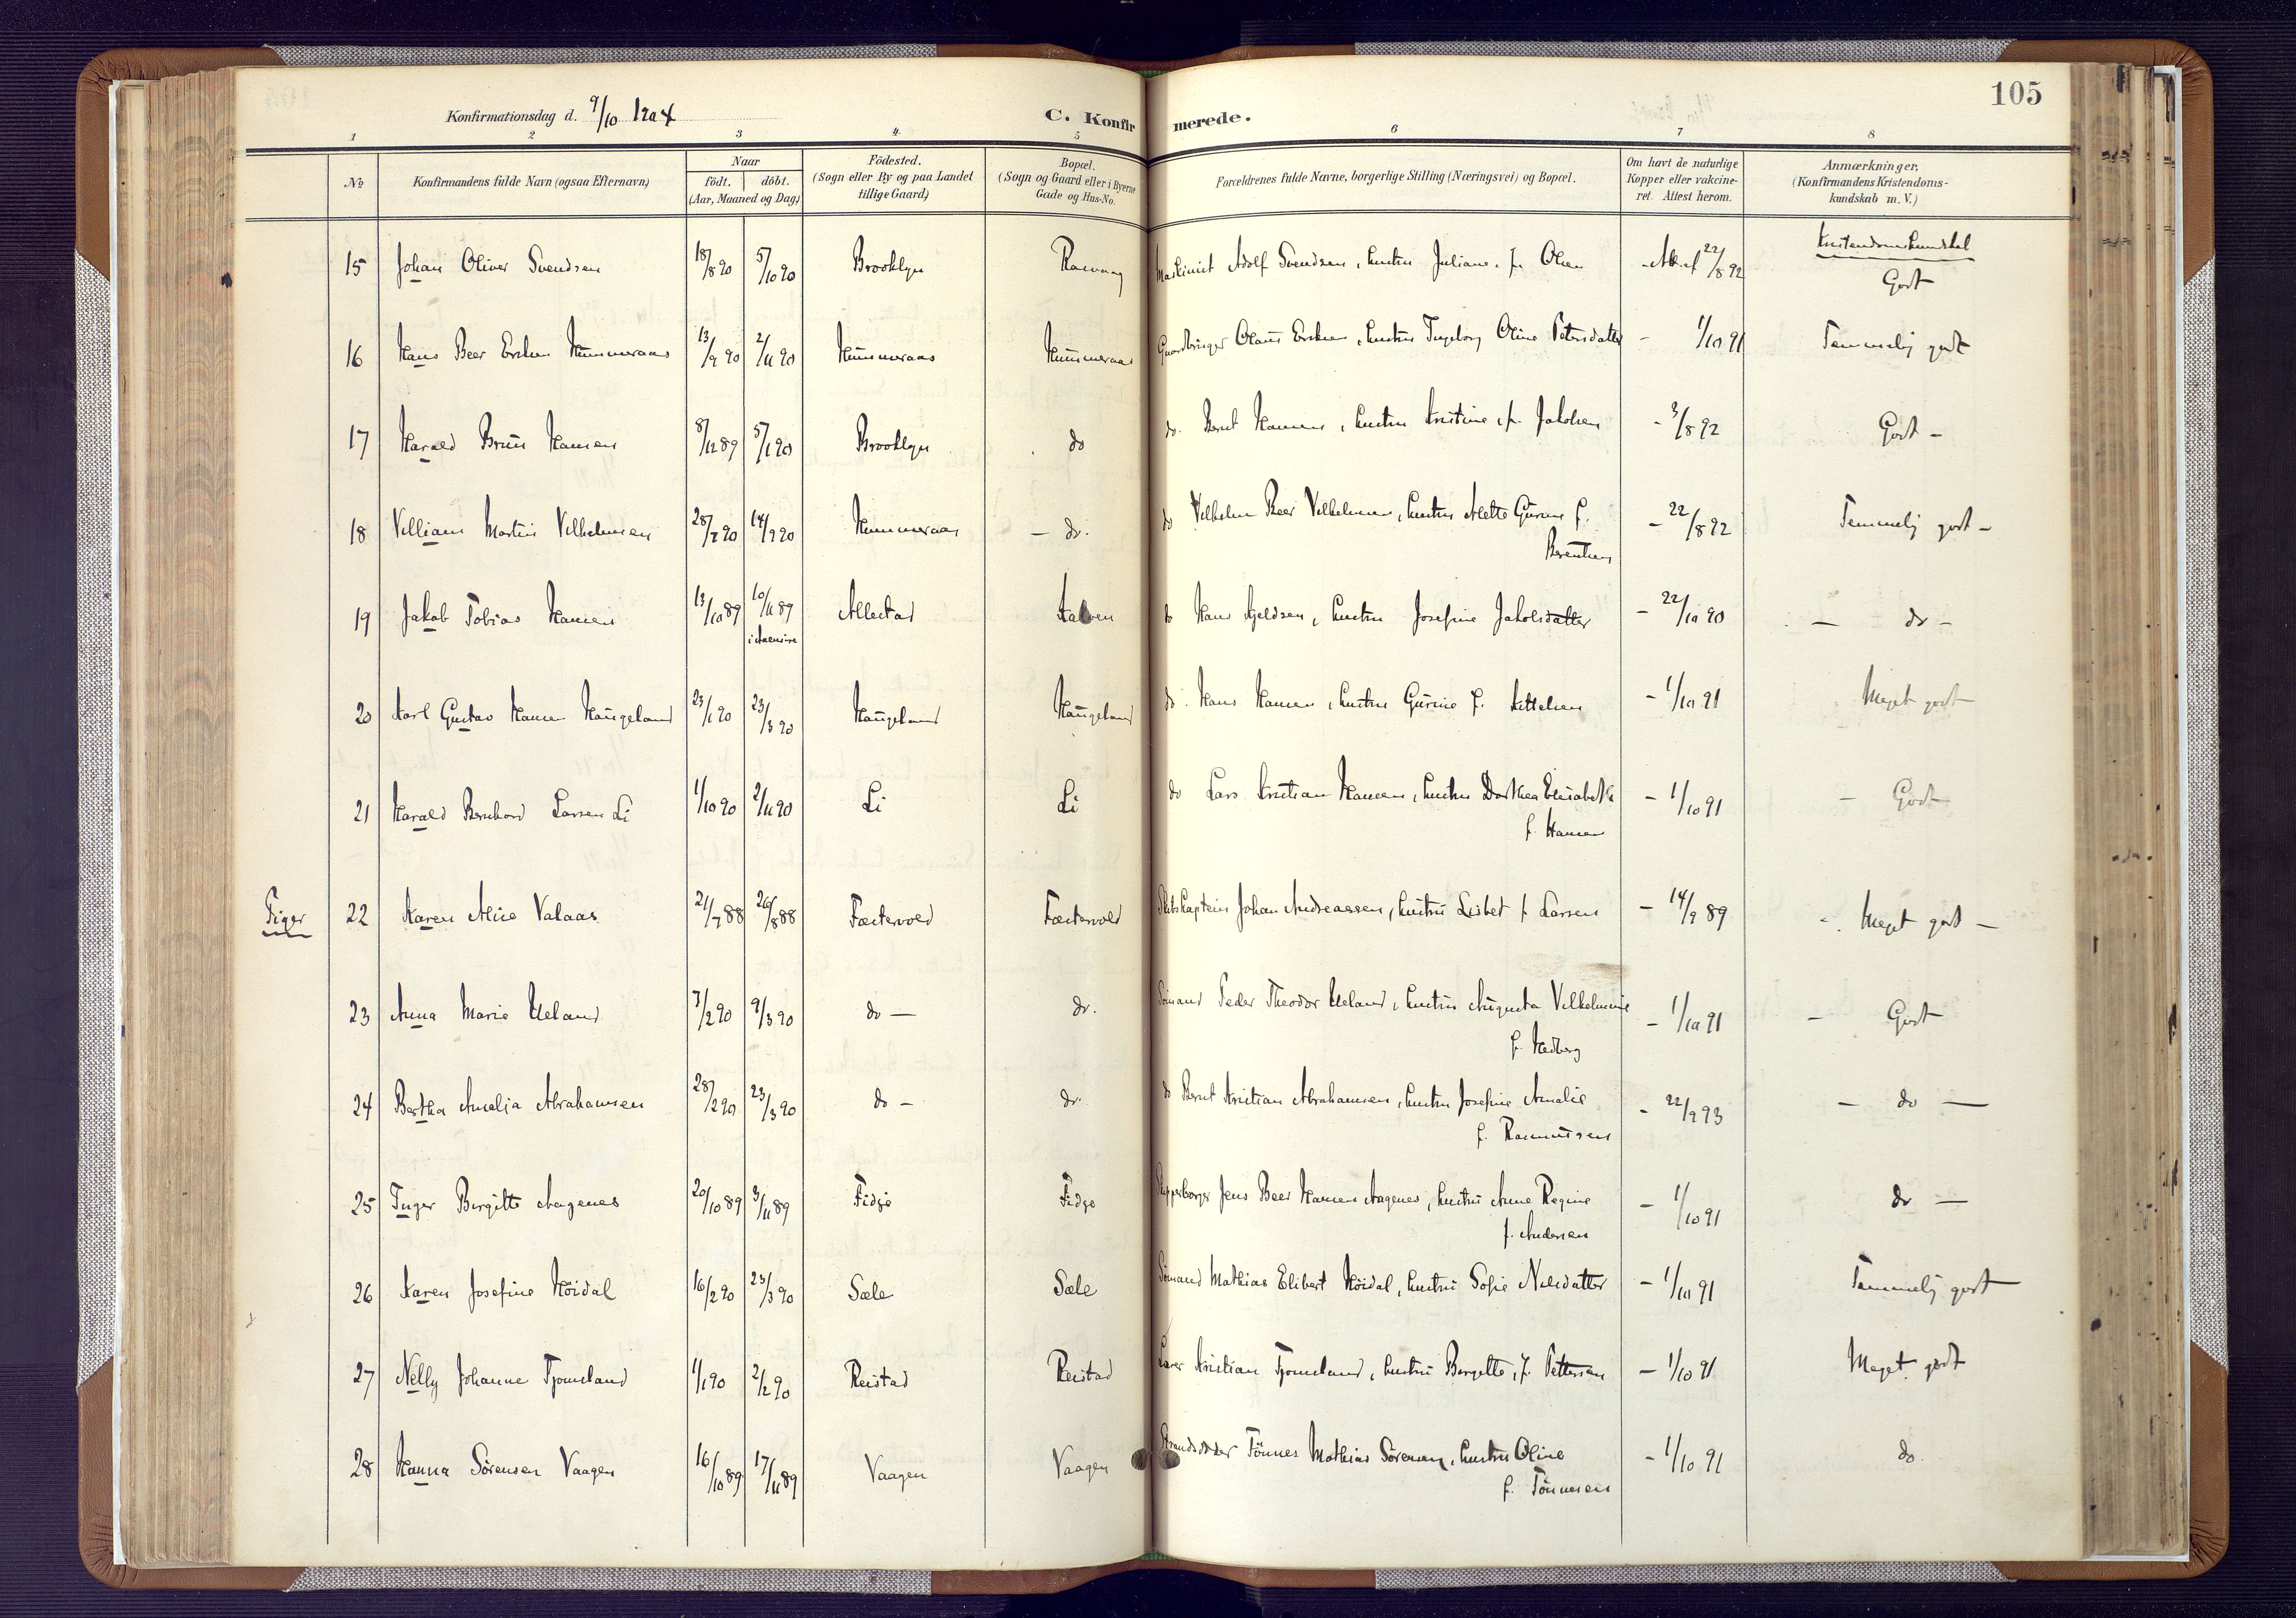 105
Konfirmationsdag d. 9/10 1904
C. Konfirmerede.
1 2 3 4 5 6 7 8
No Konfirmandens fulde Navn (ogsaa Efternavn) Naar födt. döbt. (Aar, Maaned og Dag) Födested. (Sogn eller By og paa Landet tillige Gaard) Bopæl. (Sogn og Gaard eller i Byerne Gade og Hus-No. Forældrenes fulde Navne, borgerlige Stilling (Næringsvei) og Bopæl. Om havt de naturlige Kopper eller vakcineret. Attest herom. Anmærkninger, (Konfirmandens Kristendomskundskab m. V.)
Kristendomskundskab
15 Johan Oliver Svendsen 18/8 90 5/10 90 Brooklyn Maskinist Adolf Svendsen, hustru Juliane f. Olsen Att. af 22/8 92 Godt
16 Hans Beer Hummeraas 13/9 90 2/11 90 Hummeraas Hummeraas Gaardbruger Olaus hustru Ingeborg Oline Petersdatter - 1/10 91 Temmelig godt
17 Harald Bruun Hansen 8/12 89 5/1 90 Brooklyn do do. Bernt Hansen, hustru Kristine f. Jakobsen - 3/8 92 Godt -
18 Villiam Martin Vilhelmsen 28/7 90 14/9 90 Hummeraas - do. do Vilhelm Beer Vilhelmsen, hustru Mette Gurine f. Berentsen - 22/8 92 Temmelig godt -
19 Jakob Tobias Hansen 13/10 89 10/11 89 Allestad do Hans Kjeldsen, hustru Josefine Jakobsdatter - 22/10 90 - do -
20 Karl Gustav Hansen Haugeland 23/1 90 23/3 90 Haugeland Haugeland do. Hans Hansen, hustru Gurine f. Kittelsen - 1/10 91 Meget godt
21 Harald Bernhard Larsen Li 1/10 90 2/11 90 Li Li do Lars Kristian Hansen, hustru Dorthea Elisabeth f. Hansen - 1/10 91 - Godt
Piger
22 Karen Alice Valaas 21/7 88 26/8 88 Fæstervold Fæstervold Skibskaptein Johan Andreassen, hustru Lisbet f Larsen - 14/9 89 - Meget godt -
23 Anna Marie Ueland 7/2 90 9/3 90 do - do. Sömand Peder Theodor Ueland, hustru Augusta Vilhelmine f. Hedberg - 1/10 91 - Godt
24 Bertha Amalia Abrahamsen 28/2 90 23/3 90 do - do. do Bernt Kristian Abrahamsen, hustru Josefine Amalie f. Rasmussen - 22/9 93 - do -
25 Inger Birgitte Aagenes 20/10 89 3/11 89 Fidje Fidje Jens Beer Hansen Aagenes, hustru Anne Regine f. Andersen - 1/10 91 do -
26 Karen Josefine Höidal 16/2 90 23/3 90 Sæle Sæle Sömand Mathias Elibert Höidal, hustru Sofie Nilsdatter - 1/10 91 Temmelig godt
27 Nelly Johanne Tjomsland 1/1 90 2/2 90 Reistad Reistad Lærer Kristian Tjomsland, hustru Birgitte, f. Pettersen - 1/10 91 Meget godt
28 Hanna Sörensen Vaagen 16/10 89 17/11 89 Vaagen Vaagen Strandsidder Tönnes Mathias Sörensen, hustru Oline f. Tönnesen - 1/10 91 do.